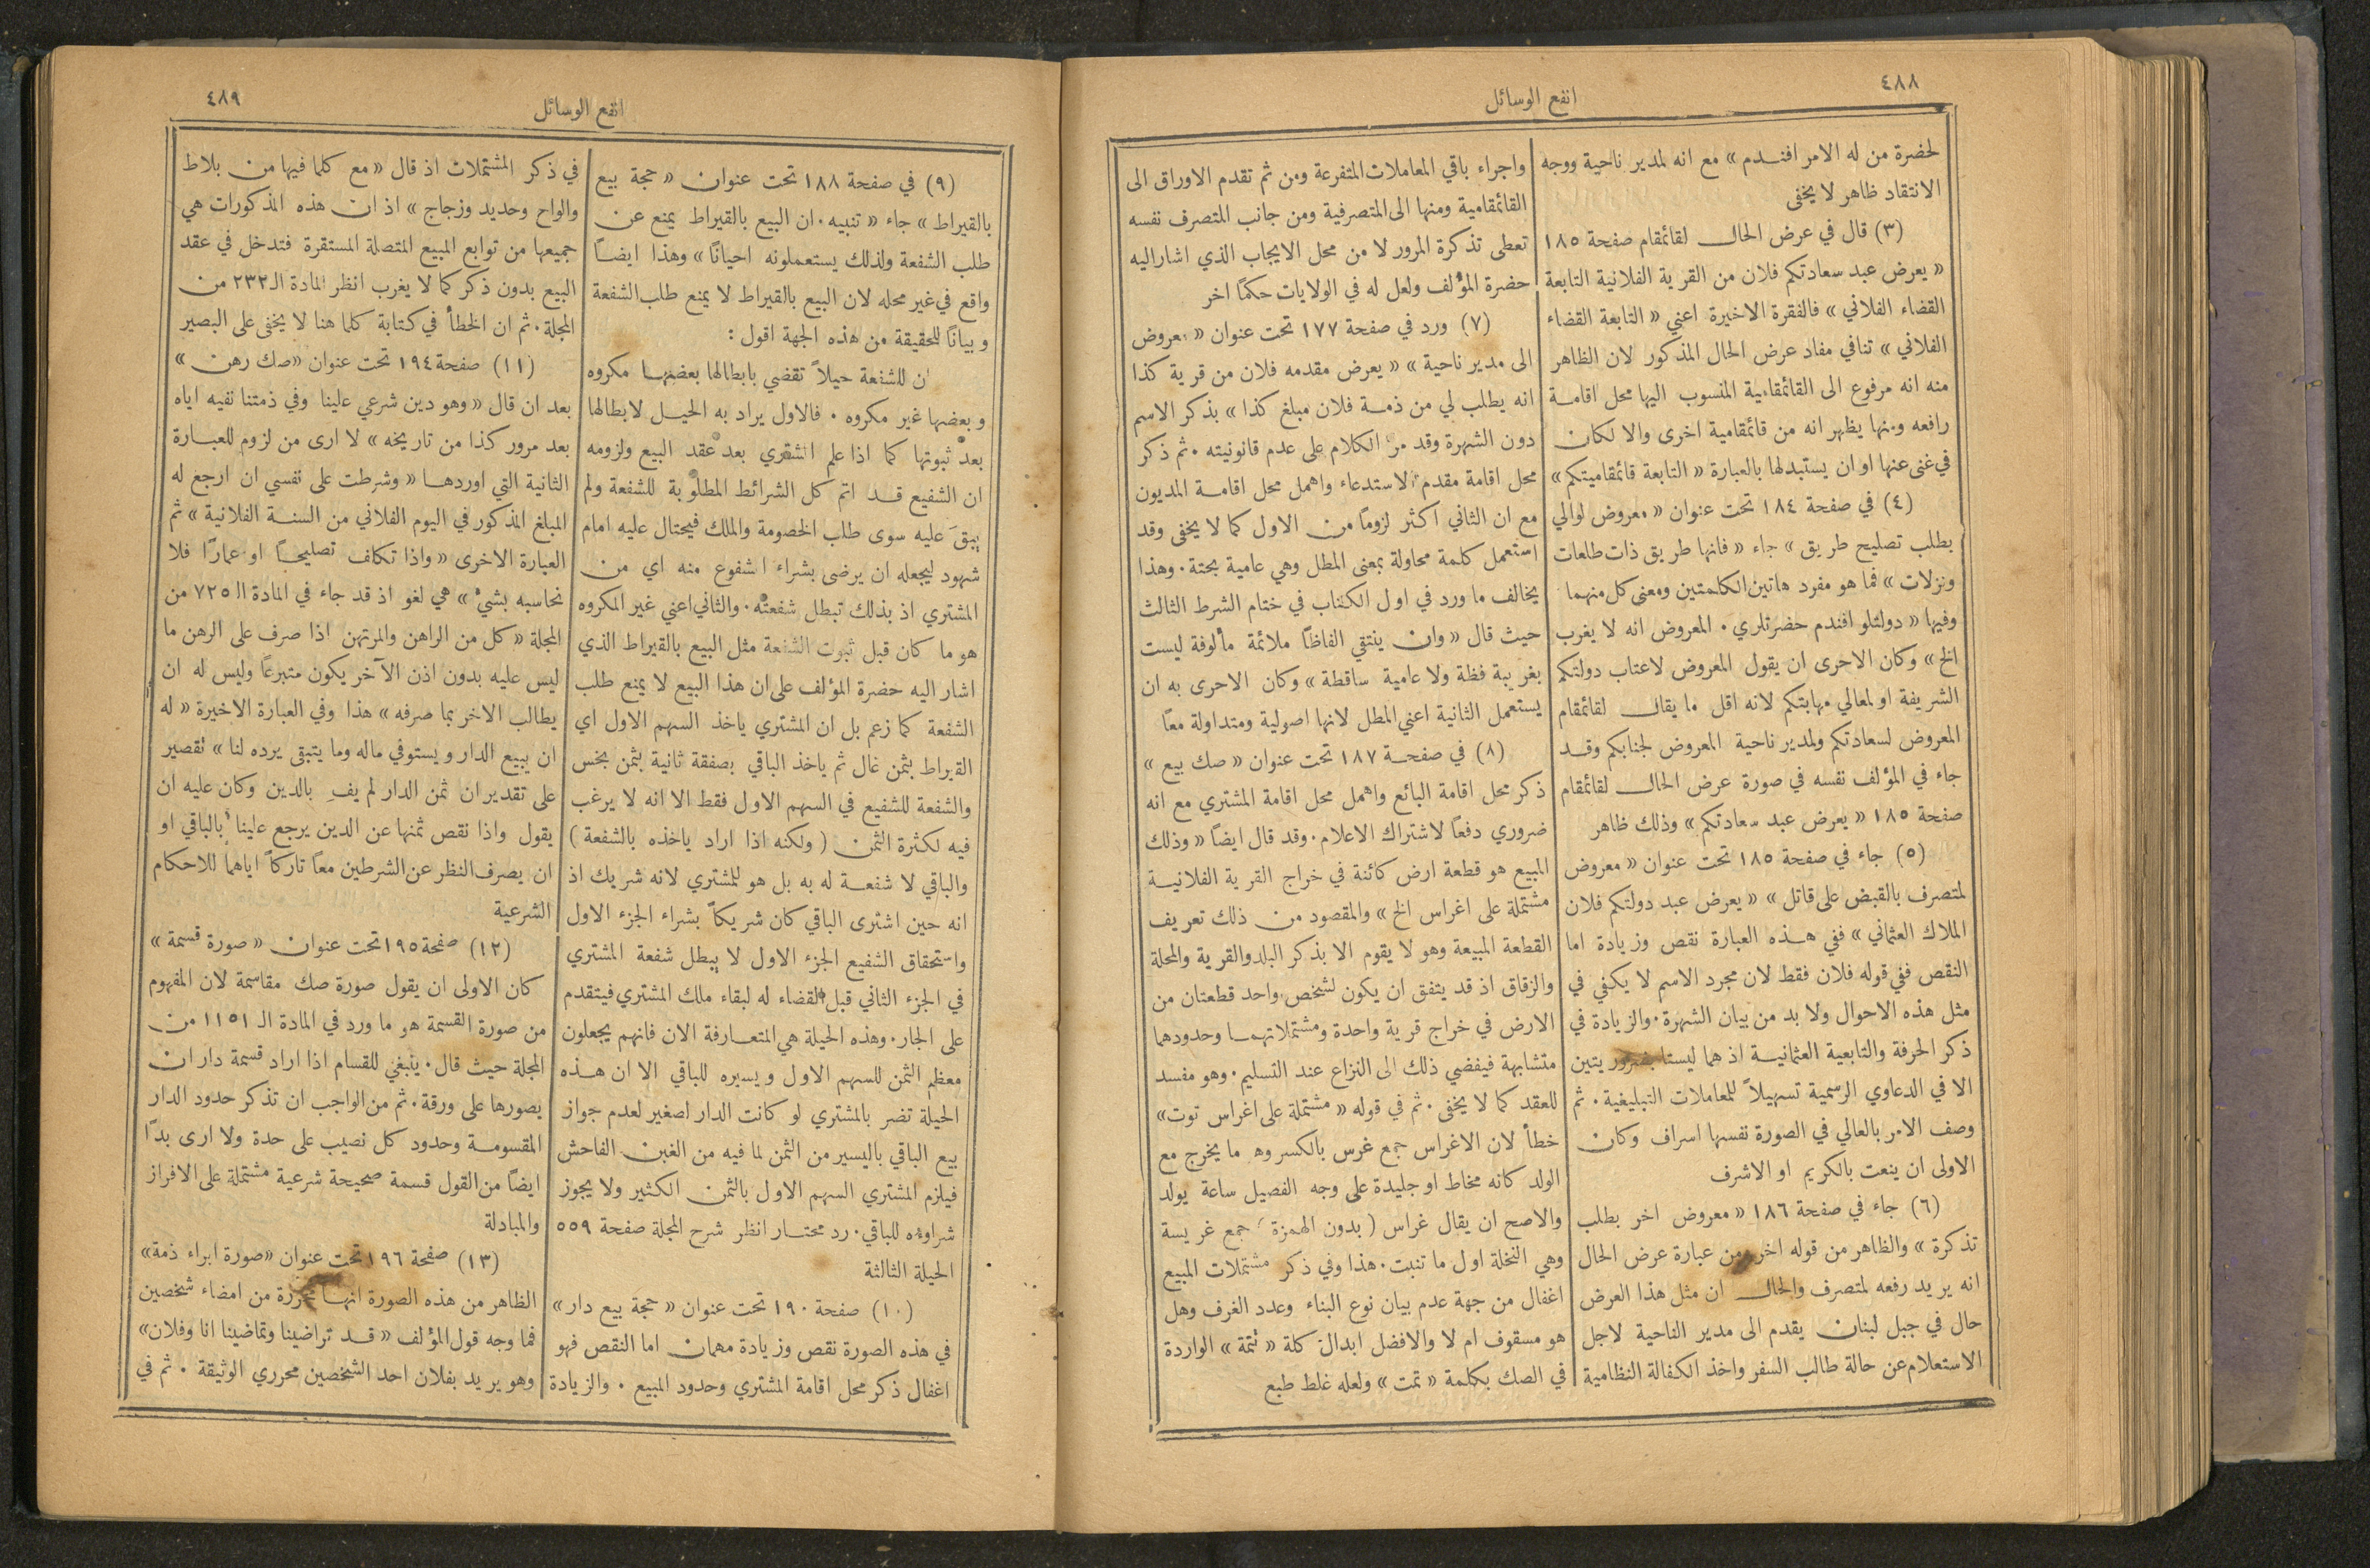 ٤٨٨
انفع الوسائل
لحضرة من له الامر افنـدم » مع انه لمدير ناحية ووجه
الانتقاد ظاهر لا يخفى
(٣) قال في عرض الحال لقائمقام صفحة ١٨٥
« يعرض عبد سعادتكم فلان من القرية الفلانية التابعة
القضاء الفلاني » فالفقرة الاخيرة اعني « التابعة القضاء
الفلاني » تنافي مفاد عرض الحال المذكور لان الظاهر
منه انه مرفوع الى القائمقامية المنسوب اليها محل اقامـة
رافعه ومنها يظهر انه من قائمقامية اخرى والا لكان
في غنى عنها او ان يستبدلها بالعبارة « التابعة قائمقاميتكم »
(٤) في صفحة ١٨٤ تحت عنوان « معروض لوالي
بطلب تصليح طريق » جاء « فانها طريق ذات طلعات
ونزلات » فما هو مفرد هاتين الكلمتين ومعنى كل منهما
وفيها « دولتلو افندم حضرتلري . المعروض انه لا يغرب
الخ » وكان الاحرى ان يقول المعروض لاعتاب دولتكم
الشريفة او لمعالي مهابتكم لانه اقل ما يقال لقائمقام
المعروض لسعادتكم ولمدير ناحية المعروض لجنابكم وقـد
جاء في المؤلف نفسه في صورة عرض الحال لقائمقام
صفحة ١٨٥ « يعرض عبد سعادتكم » وذلك ظاهر
(٥) جاء في صفحة ١٨٥ تحت عنوان « معروض
لمتصرف بالقبض على قاتل » « يعرض عبد دولتكم فلان
الملاك العثماني » ففي هـذه العبارة نقص وزيادة اما
النقص ففي قوله فلان فقط لان مجرد الاسم لا يكفي في
مثل هذه الاحوال ولا بد من بيان الشهرة . والزيادة في
ذكر الحرفة والتابعية العثمانيـة اذ هما ليستا بضروريتين
الا في الدعاوي الرسمية تسهيلاً للمعاملات التبليغية . ثم
وصف الامر بالعالي في الصورة نفسها اسراف وكان
الاولى ان ينعت بالكريم او الاشرف
(٦) جاء في صفحة ١٨٦ « معروض اخر بطلب
تذكرة » والظاهر من قوله اخر ومن عبارة عرض الحال
انه يريد رفعه لمتصرف والحال ان مثل هذا العرض
حال في جبل لبنان يقدم الى مدير الناحية لاجل
الاستعلام عن حالة طالب السفر واخذ الكفالة النظامية
واجراء باقي المعاملات المتفرعة ومن ثم تقدم الاوراق الى
القائمقامية ومنها الى المتصرفية ومن جانب المتصرف نفسه
تعطى تذكرة المرور لا من محل الايجاب الذي اشار اليه
حضرة المؤلف ولعل له في الولايات حكمًا اخر
(٧) ورد في صفحة ١٧٧ تحت عنوان « معروض
الى مدير ناحية » « يعرض مقدمه فلان من قرية كذا
انه يطلب لي من ذمـة فلان مبلغ كذا » بذكر الاسم
دون الشهرة وقد مرّ الكلام على عدم قانونيته . ثم ذكر
محل اقامة مقدم الاستدعاء واهمل محل اقامـة المديون
مع ان الثاني اكثر لزومًا من الاول كما لا يخفى وقد
استعمل كلمة محاولة بمعنى المطل وهي عامية بحتة . وهذا
يخالف ما ورد في اول الكتاب في ختام الشرط الثالث
حيث قال « وان ينتقي الفاظًا ملائمة مألوفة ليست
بغريبة فظة ولا عامية ساقطة » وكان الاحرى به ان
يستعمل الثانية اعني المطل لانها اصولية ومتداولة معًا
(٨) في صفحـة ١٨٧ تحت عنوان « صك بيع »
ذكر محل اقامة البائع واهمل محل اقامة المشتري مع انه
ضروري دفعًا لاشتراك الاعلام . وقد قال ايضًا « وذلك
المبيع هو قطعة ارض كائنة في خراج القرية الفلانيـة
مشتملة على اغراس الخ » والمقصود من ذلك تعريف
القطعة المبيعة وهو لا يقوم الا بذكر البلد والقرية والمحلة
والزقاق اذ قد يتفق ان يكون لشخص واحد قطعتان من
الارض في خراج قرية واحدة ومشتملاتهمـا وحدودهما
متشابهة فيفضي ذلك الى النزاع عند التسليم . وهو مفسد
للعقد كما لا يخفى . ثم في قوله « مشتملة على اغراس توت »
خطأ لان الاغراس جمع غرس بالكسر وهـ ما يخرج مع
الولد كانه مخاط او جليدة على وجه الفصيل ساعة يولد
والاصح ان يقال غراس ( بدون الهمزة ) جمع غريسة
وهي النخلة اول ما تنبت . هذا وفي ذكر مشتملات المبيع
اغفال من جهة عدم بيان نوع البناء وعدد الغرف وهل
هو مسقوف ام لا والافضل ابدال كلة « تتمة » الواردة
في الصك بكلمة « تمت » ولعله غلط طبع
٤٨٩
انفع الوسائل
(٩) في صفحة ١٨٨ تحت عنوان « حجة بيع
بالقيراط » جاء « تنبيه . ان البيع بالقيراط يمنع عن
طلب الشفعة ولذلك يستعملونه احيانًا » وهذا ايضـًا
واقع في غير محله لان البيع بالقيراط لا يمنع طلب الشفعة
وبيانًا للحقيقة من هذه الجهة اقول :
ن للشفعة حيلاً تقضي بابطالها بعضهـا مكروه
وبعضها غير مكروه . فالاول يراد به الحيـل لابطالها
بعد ثبوتها كما اذا علم المشتري بعد عقد البيع ولزومه
ان الشفيع قـد اتم كل الشرائط المطلوبة للشفعة ولم
يبقَ عليه سوى طلب الخصومة والملك فيحتال عليه امام
شهود ليجعله ان يرضى بشراء المشفوع منه اي من
المشتري اذ بذلك تبطل شفعته . والثاني اعني غير المكروه
هو ما كان قبل ثبوت الشفعة مثل البيع بالقيراط الذي
اشار اليه حضرة المؤلف على ان هذا البيع لا يمنع طلب
الشفعة كما زعم بل ان المشتري ياخذ السهم الاول اي
القيراط بثمن غال ثم ياخذ الباقي بصفقة ثانية بثمن بخس
والشفعة للشفيع في السهم الاول فقط الا انه لا يرغب
فيه لكثرة الثمن ( ولكنه اذا اراد ياخذه بالشفعة )
والباقي لا شفعـة له به بل هو للمشتري لانه شريك اذ
انه حين اشترى الباقي كان شريكاً بشراء الجزء الاول
واستحقاق الشفيع الجزء الاول لا يبطل شفعة المشتري
في الجزء الثاني قبل القضاء له لبقاء ملك المشتري فيتقدم
على الجار . وهذه الحيلة هي المتعـارفة الان فانهم يجعلون
معظم الثمن للسهم الاول ويسيره للباقي الا ان هـذه
الحيلة تضر بالمشتري لو كانت الدار لصغير لعدم جواز
بيع الباقي باليسير من الثمن لما فيه من الغبن الفاحش
فيلزم المشتري السهم الاول بالثمن الكثير ولا يجوز
شراوءه للباقي . رد محتـار انظر شرح المجلة صفحة ٥٥٩
الحيلة الثالثة
(١٠) صفحة ١٩٠ تحت عنوان « حجة بيع دار »
في هذه الصورة نقص وزيادة مهمان اما النقص فهو
اغفال ذكر محل اقامة المشتري وحدود المبيع . والزيادة
في ذكر المشتملات اذ قال « مع كلما فيها من بلاط
والواح وحديد وزجاج » اذ ان هذه المذكورات هي
جميعها من توابع المبيع المتصلة المستقرة فتدخل في عقد
البيع بدون ذكر كما لا يغرب انظر المادة الـ ٢٣٢ من
المجلة . ثم ان الخطأ في كتابة كلما هنا لا يخفى على البصير
(١١) صفحة ١٩٤ تحت عنوان « صك رهن »
بعد ان قال « وهو دين شرعي علينا وفي ذمتنا نفيه اياه
بعد مرور كذا من تاريخه » لا ارى من لزوم للعبـارة
الثانية التي اوردهـا « وشرطت على نفسي ان ارجع له
المبلغ المذكور في اليوم الفلاني من السنـة الفلانية » ثم
العبارة الاخرى « واذا تكلف تصليحـًا او عمارًا فلا
نحاسبه بشيء » هي لغو اذ قد جاء في المادة الـ ٧٢٥ من
المجلة « كل من الراهن والمرتهن اذا صرف على الرهن ما
ليس عليه بدون اذن الآخر يكون متبرعًا وليس له ان
يطالب الاخر بما صرفه » هذا وفي العبارة الاخيرة « له
ان يبيع الدار ويستوفي ماله وما يتبقى يرده لنا » تقصير
على تقدير ان ثمن الدار لم يفِ بالدين وكان عليه ان
يقول واذا نقص ثمنها عن الدين يرجع علينا بالباقي او
ان يصرف النظر عن الشرطين معًا تاركاً اياهما للاحكام
الشرعية
(١٢) صفحة ١٩٥ تحت عنوان « صورة قسمة »
كان الاولى ان يقول صورة صك مقاسمة لان المفهوم
من صورة القسمة هو ما ورد في المادة الـ ١١٥١ من
المجلة حيث قال . ينبغي للقسام اذا اراد قسمة دار ان
يصورها على ورقة . ثم من الواجب ان تذكر حدود الدار
المقسومـة وحدود كل نصيب على حدة ولا ارى بدًّا
ايضًا من القول قسمة صحيحة شرعية مشتملة على الافراز
والمبادلة
(١٣) صفحة ١٩٦ تحت عنوان « صورة ابراء ذمة »
الظاهر من هذه الصورة انهـا محررة من امضاء شخصين
فما وجه قول المؤلف « قـد تراضينا وتماضينا انا وفلان »
وهو يريد بفلان احد الشخصين محرري الوثيقة . ثم في